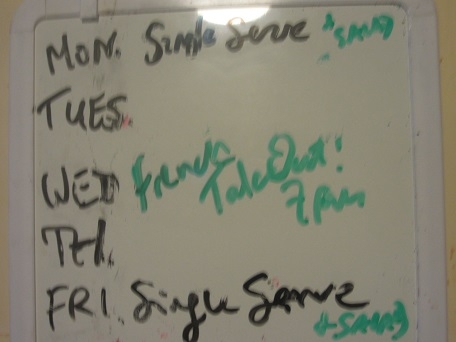 MON. Single Serve + SALAD
TUES.
WED French TakeOut! 7 pm
TH.
FRI. Single Serve + SALAD